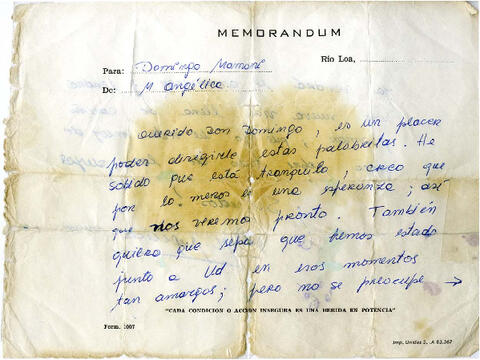 MEMORANDUM
Río Loa, ........................
Para: Domingo Mamani
De: M Angélica
Querido Don Domingo, es un placer
poder dirigirle estas palabritas. He
sabido que está tranquilo, creo que
por lo menos le una esperanza; así
que nos veremos pronto. También
quiero que sepa que hemos estado
junto a Ud en esos momentos
tan amargos; pero no se preocupe →
"CADA CONDICION O ACCION INSEGURA ES UNA HERIDA EN POTENCIA"
Form. 1007
Imp. Unidas S. A 83.367